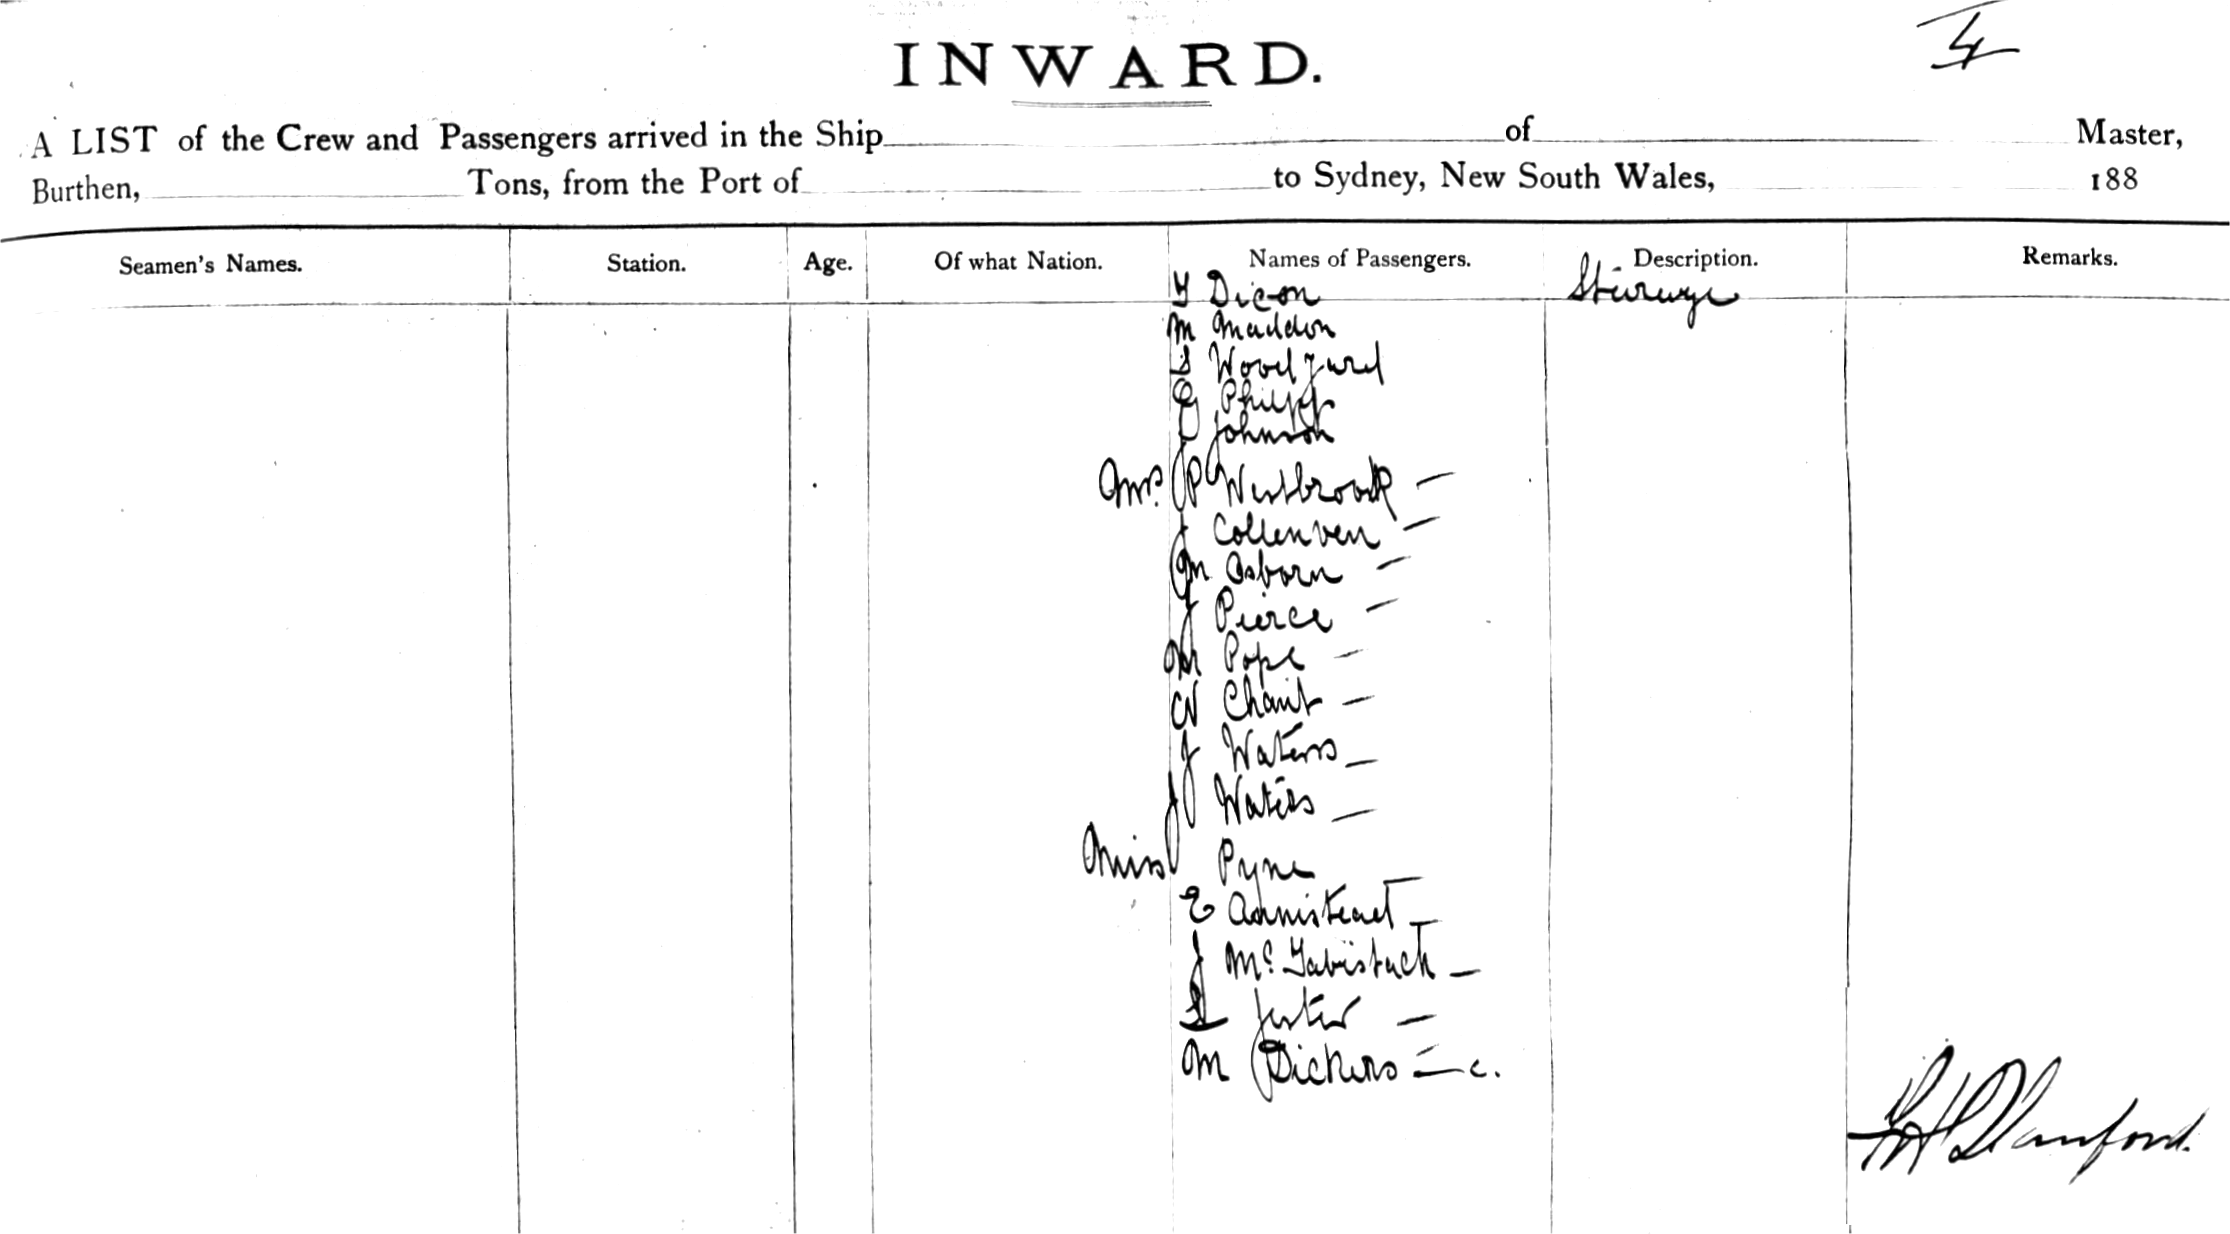 4
INWARD.
A LIST of the Crew and Passengers arrived in the Ship of Master,
Burthen, Tons, from the Port of to Sydney, New South Wales, 188
Seamen's Names. Station. Age. Of what Nation. Names of Passengers. Description. Remarks.
Y Dixon Steerage
M Maddon
S Woodyard
G Philipp
J Johnson
Mrs. P Westbrook —
J Collenven —
M Osborn —
J Pierce —
M Pope —
W Chant —
J Waters —
J Waters —
Miss Pyne —
E Armistead —
J Mc —
S Jester —
M Dickens — c.